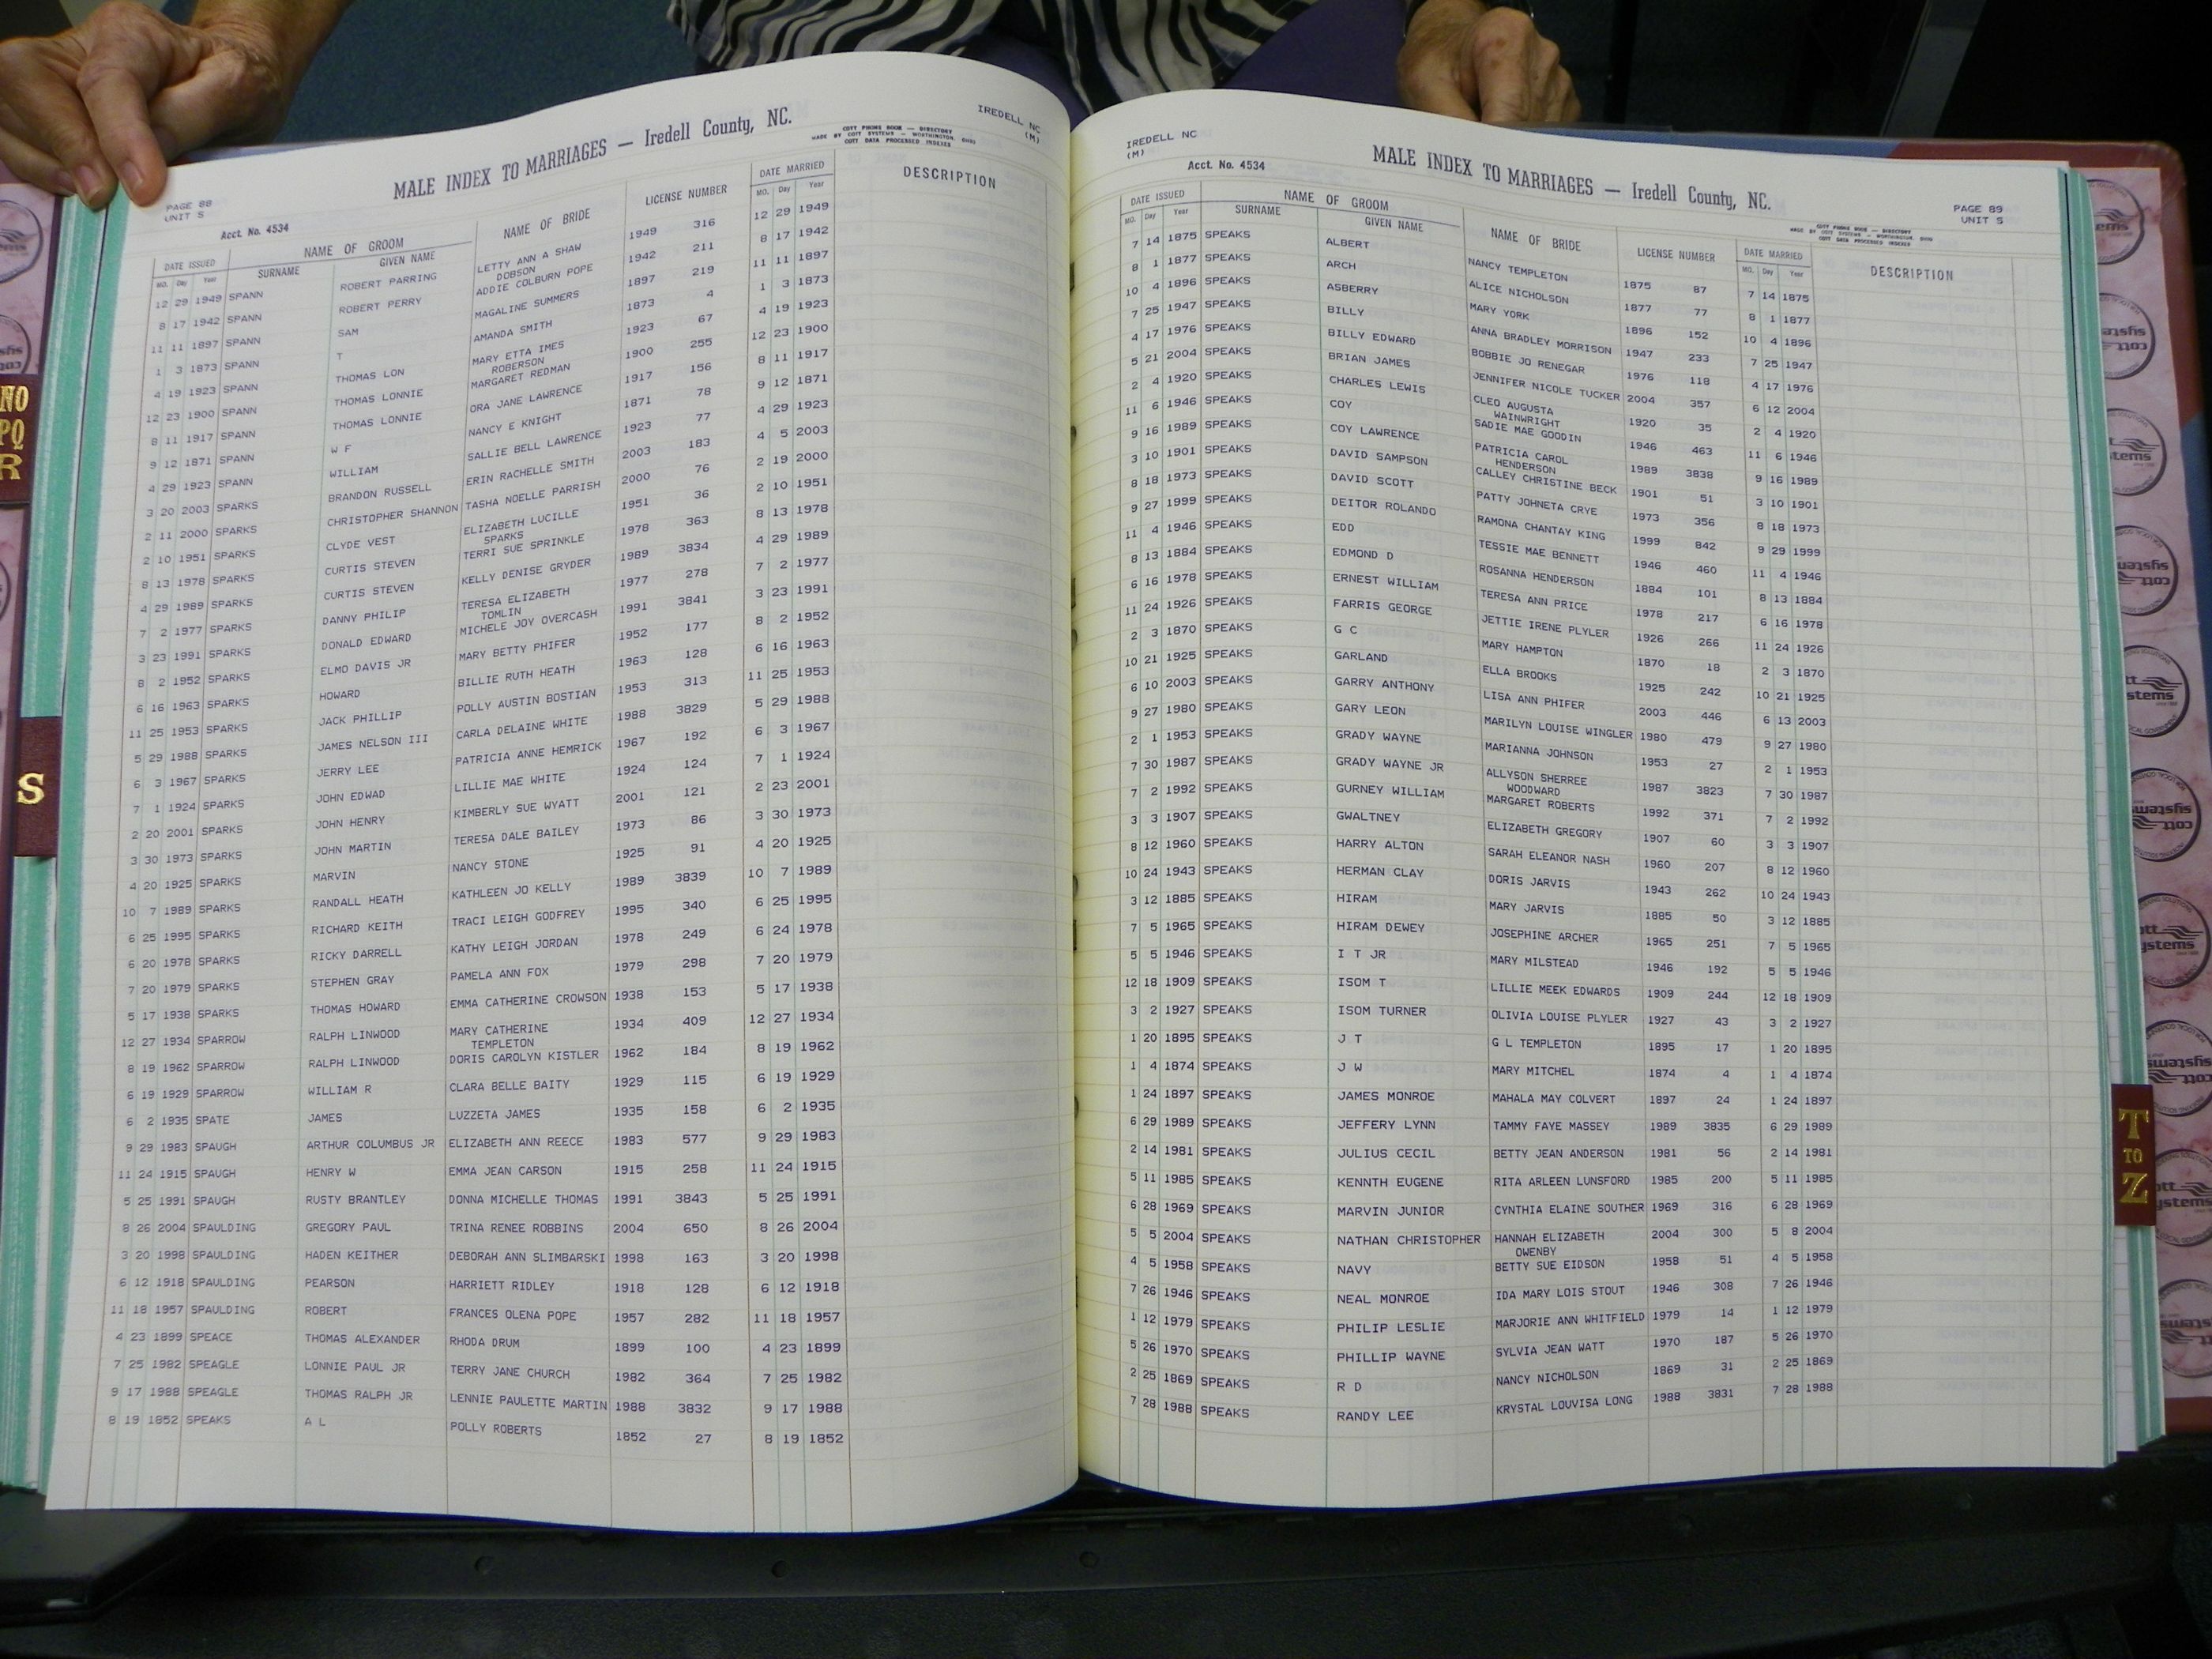 MALE INDEX TO MARRIAGES — Iredell County, NC.
IREDELL NC
(M)
COTT PHONE BOOK — DIRECTORY
MADE BY COTT SYSTEMS — WORTHINGTON, OHIO
COTT DATA PROCESSED INDEXES
PAGE 88
UNIT S
Acct. No. 4534
DATE ISSUED NAME OF GROOM NAME OF BRIDE LICENSE NUMBER DATE MARRIED DESCRIPTION
MO. Day Year SURNAME GIVEN NAME MO. Day Year
12 29 1949 SPANN ROBERT PARRING LETTY ANN A SHAW 1949 316 12 29 1949
DOBSON
8 17 1942 SPANN ROBERT PERRY ADDIE COLBURN POPE 1942 211 8 17 1942
11 11 1897 SPANN SAM MAGALINE SUMMERS 1897 219 11 11 1897
1 3 1873 SPANN T AMANDA SMITH 1873 4 1 3 1873
4 19 1923 SPANN THOMAS LON MARY ETTA IMES 1923 67 4 19 1923
ROBERSON
12 23 1900 SPANN THOMAS LONNIE MARGARET REDMAN 1900 255 12 23 1900
8 11 1917 SPANN THOMAS LONNIE ORA JANE LAWRENCE 1917 156 8 11 1917
9 12 1871 SPANN W F NANCY E KNIGHT 1871 78 9 12 1871
4 29 1923 SPANN WILLIAM SALLIE BELL LAWRENCE 1923 77 4 29 1923
3 20 2003 SPARKS BRANDON RUSSELL ERIN RACHELLE SMITH 2003 183 4 5 2003
2 11 2000 SPARKS CHRISTOPHER SHANNON TASHA NOELLE PARRISH 2000 76 2 19 2000
2 10 1951 SPARKS CLYDE VEST ELIZABETH LUCILLE 1951 36 2 10 1951
SPARKS
8 13 1978 SPARKS CURTIS STEVEN TERRI SUE SPRINKLE 1978 363 8 13 1978
4 29 1989 SPARKS CURTIS STEVEN KELLY DENISE GRYDER 1989 3834 4 29 1989
7 2 1977 SPARKS DANNY PHILIP TERESA ELIZABETH 1977 278 7 2 1977
TOMLIN
3 23 1991 SPARKS DONALD EDWARD MICHELE JOY OVERCASH 1991 3841 3 23 1991
8 2 1952 SPARKS ELMO DAVIS JR MARY BETTY PHIFER 1952 177 8 2 1952
6 16 1963 SPARKS HOWARD BILLIE RUTH HEATH 1963 128 6 16 1963
11 25 1953 SPARKS JACK PHILLIP POLLY AUSTIN BOSTIAN 1953 313 11 25 1953
5 29 1988 SPARKS JAMES NELSON III CARLA DELAINE WHITE 1988 3829 5 29 1988
6 3 1967 SPARKS JERRY LEE PATRICIA ANNE HEMRICK 1967 192 6 3 1967
7 1 1924 SPARKS JOHN EDWAD LILLIE MAE WHITE 1924 124 7 1 1924
2 20 2001 SPARKS JOHN HENRY KIMBERLY SUE WYATT 2001 121 2 23 2001
3 30 1973 SPARKS JOHN MARTIN TERESA DALE BAILEY 1973 86 3 30 1973
4 20 1925 SPARKS MARVIN NANCY STONE 1925 91 4 20 1925
10 7 1989 SPARKS RANDALL HEATH KATHLEEN JO KELLY 1989 3839 10 7 1989
6 25 1995 SPARKS RICHARD KEITH TRACI LEIGH GODFREY 1995 340 6 25 1995
6 20 1978 SPARKS RICKY DARRELL KATHY LEIGH JORDAN 1978 249 6 24 1978
7 20 1979 SPARKS STEPHEN GRAY PAMELA ANN FOX 1979 298 7 20 1979
5 17 1938 SPARKS THOMAS HOWARD EMMA CATHERINE CROWSON 1938 153 5 17 1938
12 27 1934 SPARROW RALPH LINWOOD MARY CATHERINE 1934 409 12 27 1934
TEMPLETON
8 19 1962 SPARROW RALPH LINWOOD DORIS CAROLYN KISTLER 1962 184 8 19 1962
6 19 1929 SPARROW WILLIAM R CLARA BELLE BAITY 1929 115 6 19 1929
6 2 1935 SPATE JAMES LUZZETA JAMES 1935 158 6 2 1935
9 29 1983 SPAUGH ARTHUR COLUMBUS JR ELIZABETH ANN REECE 1983 577 9 29 1983
11 24 1915 SPAUGH HENRY W EMMA JEAN CARSON 1915 258 11 24 1915
5 25 1991 SPAUGH RUSTY BRANTLEY DONNA MICHELLE THOMAS 1991 3843 5 25 1991
8 26 2004 SPAULDING GREGORY PAUL TRINA RENEE ROBBINS 2004 650 8 26 2004
3 20 1998 SPAULDING HADEN KEITHER DEBORAH ANN SLIMBARSKI 1998 163 3 20 1998
6 12 1918 SPAULDING PEARSON HARRIETT RIDLEY 1918 128 6 12 1918
11 18 1957 SPAULDING ROBERT FRANCES OLENA POPE 1957 282 11 18 1957
4 23 1899 SPEACE THOMAS ALEXANDER RHODA DRUM 1899 100 4 23 1899
7 25 1982 SPEAGLE LONNIE PAUL JR TERRY JANE CHURCH 1982 364 7 25 1982
9 17 1988 SPEAGLE THOMAS RALPH JR LENNIE PAULETTE MARTIN 1988 3832 9 17 1988
8 19 1852 SPEAKS A L POLLY ROBERTS 1852 27 8 19 1852
IREDELL NC
(M)
Acct. No. 4534
MALE INDEX TO MARRIAGES — Iredell County, NC.
PAGE 89
UNIT S
COTT PHONE BOOK — DIRECTORY
MADE BY COTT SYSTEMS — WORTHINGTON, OHIO
COTT DATA PROCESSED INDEXES
DATE ISSUED NAME OF GROOM NAME OF BRIDE LICENSE NUMBER DATE MARRIED DESCRIPTION
MO. Day Year SURNAME GIVEN NAME MO. Day Year
7 14 1875 SPEAKS ALBERT NANCY TEMPLETON 1875 87 7 14 1875
8 1 1877 SPEAKS ARCH ALICE NICHOLSON 1877 77 8 1 1877
10 4 1896 SPEAKS ASBERRY MARY YORK 1896 152 10 4 1896
7 25 1947 SPEAKS BILLY ANNA BRADLEY MORRISON 1947 233 7 25 1947
4 17 1976 SPEAKS BILLY EDWARD BOBBIE JO RENEGAR 1976 118 4 17 1976
5 21 2004 SPEAKS BRIAN JAMES JENNIFER NICOLE TUCKER 2004 357 6 12 2004
2 4 1920 SPEAKS CHARLES LEWIS CLEO AUGUSTA 1920 35 2 4 1920
WAINWRIGHT
11 6 1946 SPEAKS COY SADIE MAE GOODIN 1946 463 11 6 1946
9 16 1989 SPEAKS COY LAWRENCE PATRICIA CAROL 1989 3838 9 16 1989
HENDERSON
3 10 1901 SPEAKS DAVID SAMPSON CALLEY CHRISTINE BECK 1901 51 3 10 1901
8 18 1973 SPEAKS DAVID SCOTT PATTY JOHNETA CRYE 1973 356 8 18 1973
9 27 1999 SPEAKS DEITOR ROLANDO RAMONA CHANTAY KING 1999 842 9 29 1999
11 4 1946 SPEAKS EDD TESSIE MAE BENNETT 1946 460 11 4 1946
8 13 1884 SPEAKS EDMOND D ROSANNA HENDERSON 1884 101 8 13 1884
6 16 1978 SPEAKS ERNEST WILLIAM TERESA ANN PRICE 1978 217 6 16 1978
11 24 1926 SPEAKS FARRIS GEORGE JETTIE IRENE PLYLER 1926 266 11 24 1926
2 3 1870 SPEAKS G C MARY HAMPTON 1870 18 2 3 1870
10 21 1925 SPEAKS GARLAND ELLA BROOKS 1925 242 10 21 1925
6 10 2003 SPEAKS GARRY ANTHONY LISA ANN PHIFER 2003 446 6 13 2003
9 27 1980 SPEAKS GARY LEON MARILYN LOUISE WINGLER 1980 479 9 27 1980
2 1 1953 SPEAKS GRADY WAYNE MARIANNA JOHNSON 1953 27 2 1 1953
7 30 1987 SPEAKS GRADY WAYNE JR ALLYSON SHERREE 1987 3823 7 30 1987
WOODWARD
7 2 1992 SPEAKS GURNEY WILLIAM MARGARET ROBERTS 1992 371 7 2 1992
3 3 1907 SPEAKS GWALTNEY ELIZABETH GREGORY 1907 60 3 3 1907
8 12 1960 SPEAKS HARRY ALTON SARAH ELEANOR NASH 1960 207 8 12 1960
10 24 1943 SPEAKS HERMAN CLAY DORIS JARVIS 1943 262 10 24 1943
3 12 1885 SPEAKS HIRAM MARY JARVIS 1885 50 3 12 1885
7 5 1965 SPEAKS HIRAM DEWEY JOSEPHINE ARCHER 1965 251 7 5 1965
5 5 1946 SPEAKS I T JR MARY MILSTEAD 1946 192 5 5 1946
12 18 1909 SPEAKS ISOM T LILLIE MEEK EDWARDS 1909 244 12 18 1909
3 2 1927 SPEAKS ISOM TURNER OLIVIA LOUISE PLYLER 1927 43 3 2 1927
1 20 1895 SPEAKS J T G L TEMPLETON 1895 17 1 20 1895
1 4 1874 SPEAKS J W MARY MITCHEL 1874 4 1 4 1874
1 24 1897 SPEAKS JAMES MONROE MAHALA MAY COLVERT 1897 24 1 24 1897
6 29 1989 SPEAKS JEFFERY LYNN TAMMY FAYE MASSEY 1989 3835 6 29 1989
2 14 1981 SPEAKS JULIUS CECIL BETTY JEAN ANDERSON 1981 56 2 14 1981
5 11 1985 SPEAKS KENNTH EUGENE RITA ARLEEN LUNSFORD 1985 200 5 11 1985
6 28 1969 SPEAKS MARVIN JUNIOR CYNTHIA ELAINE SOUTHER 1969 316 6 28 1969
5 5 2004 SPEAKS NATHAN CHRISTOPHER HANNAH ELIZABETH 2004 300 5 8 2004
OWENBY
4 5 1958 SPEAKS NAVY BETTY SUE EIDSON 1958 51 4 5 1958
7 26 1946 SPEAKS NEAL MONROE IDA MARY LOIS STOUT 1946 308 7 26 1946
1 12 1979 SPEAKS PHILIP LESLIE MARJORIE ANN WHITFIELD 1979 14 1 12 1979
5 26 1970 SPEAKS PHILLIP WAYNE SYLVIA JEAN WATT 1970 187 5 26 1970
2 25 1869 SPEAKS R D NANCY NICHOLSON 1869 31 2 25 1869
7 28 1988 SPEAKS RANDY LEE KRYSTAL LOUVISA LONG 1988 3831 7 28 1988
NO
PQ
R
S
T
TO
Z
cott
systems